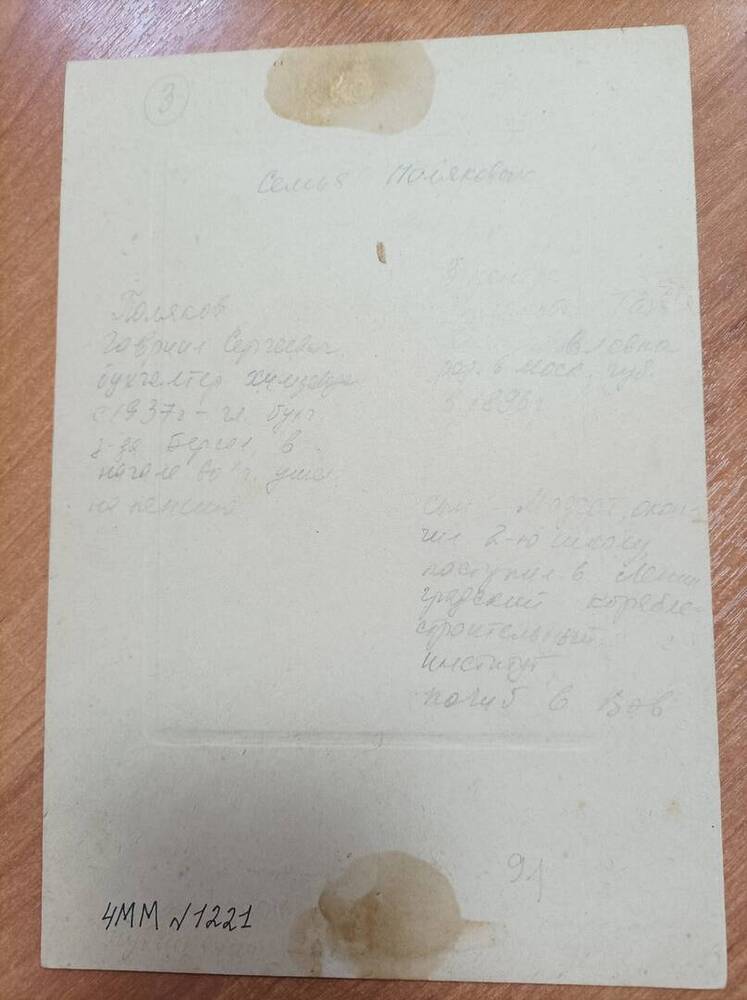 3
Семья Поляковых
Поляков
Гавриил Сергеевич
бухгалтер химзавода
с 1937г - гл. бух.
з-да Берсол, в
начале
на пенсию
В центре
вловна
род. в Моск. губ.
в 1896г
сын - окон-
чил 2-ю школу,
поступил в Ленин
градский корабле-
строительный
институт,
погиб в ВОВ
91
ЧММ №1221